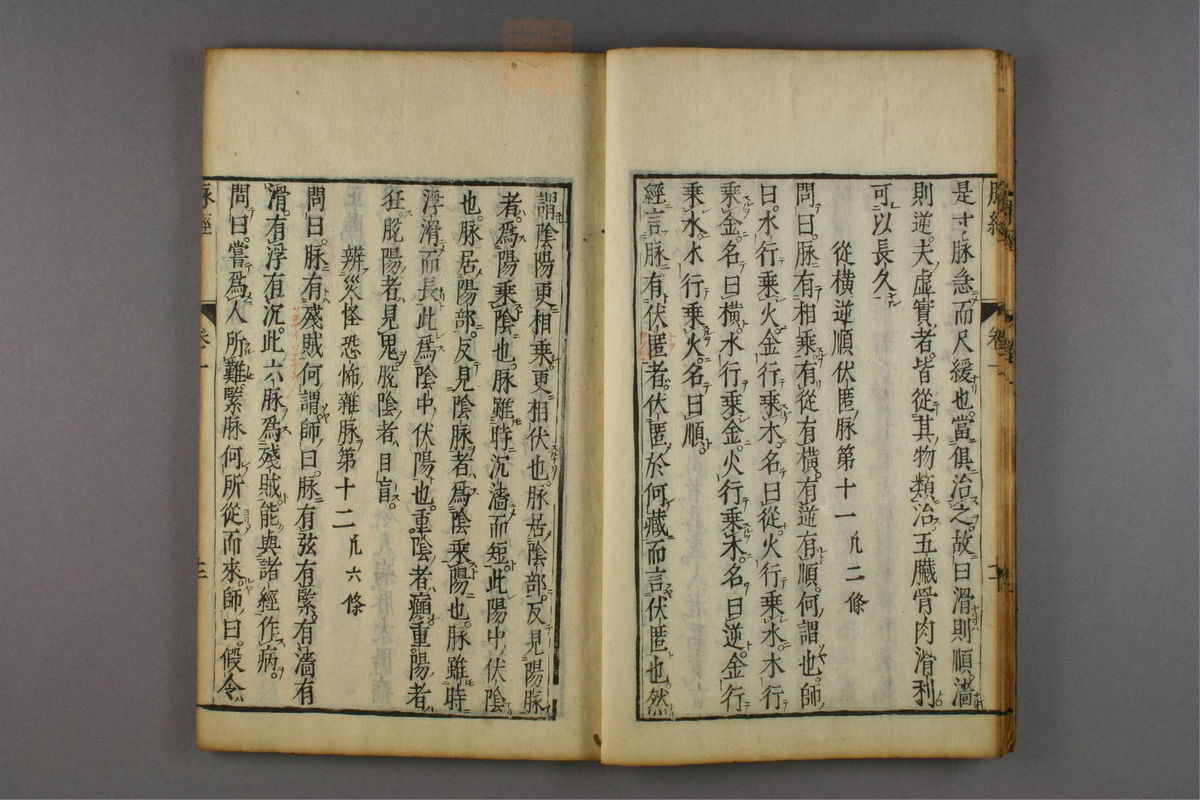 是寸脉急而尺緩也當俱治之故曰滑則順濇
則逆夫虛實者皆從其物類治五臟骨肉滑利
可以長久
從橫逆順伏匿脉第十一 凢二條
問曰脉有相乘有從有橫有逆有順何謂也師
曰水行乘火金行乘木名曰從火行乘水木行
乘金名曰橫水行乘金火行乘木名曰逆金行
乘水木行乘火名曰順
經言脉有伏匿者伏匿於何藏而言伏匿也然
脉經
卷一
謂陰陽更相乘更相伏也脉居陰部反見陽脉
者為陽乘陰也脉雖時沉濇而短此陽中伏陰
也脉居陽部反見陰脉者為陰乘陽也脉雖時
浮滑而長此為陰中伏陽也重陰者癲重陽者
狂脫陽者見鬼脫陰者目盲
辨災怪恐怖雜脉第十二 凢六條
問曰脉有殘賊何謂師曰脉有弦有緊有濇有
滑有浮有沉此六脉為殘賊能與諸經作病
問曰嘗為人所難緊脉何所從而來師曰假令
脉經
卷一